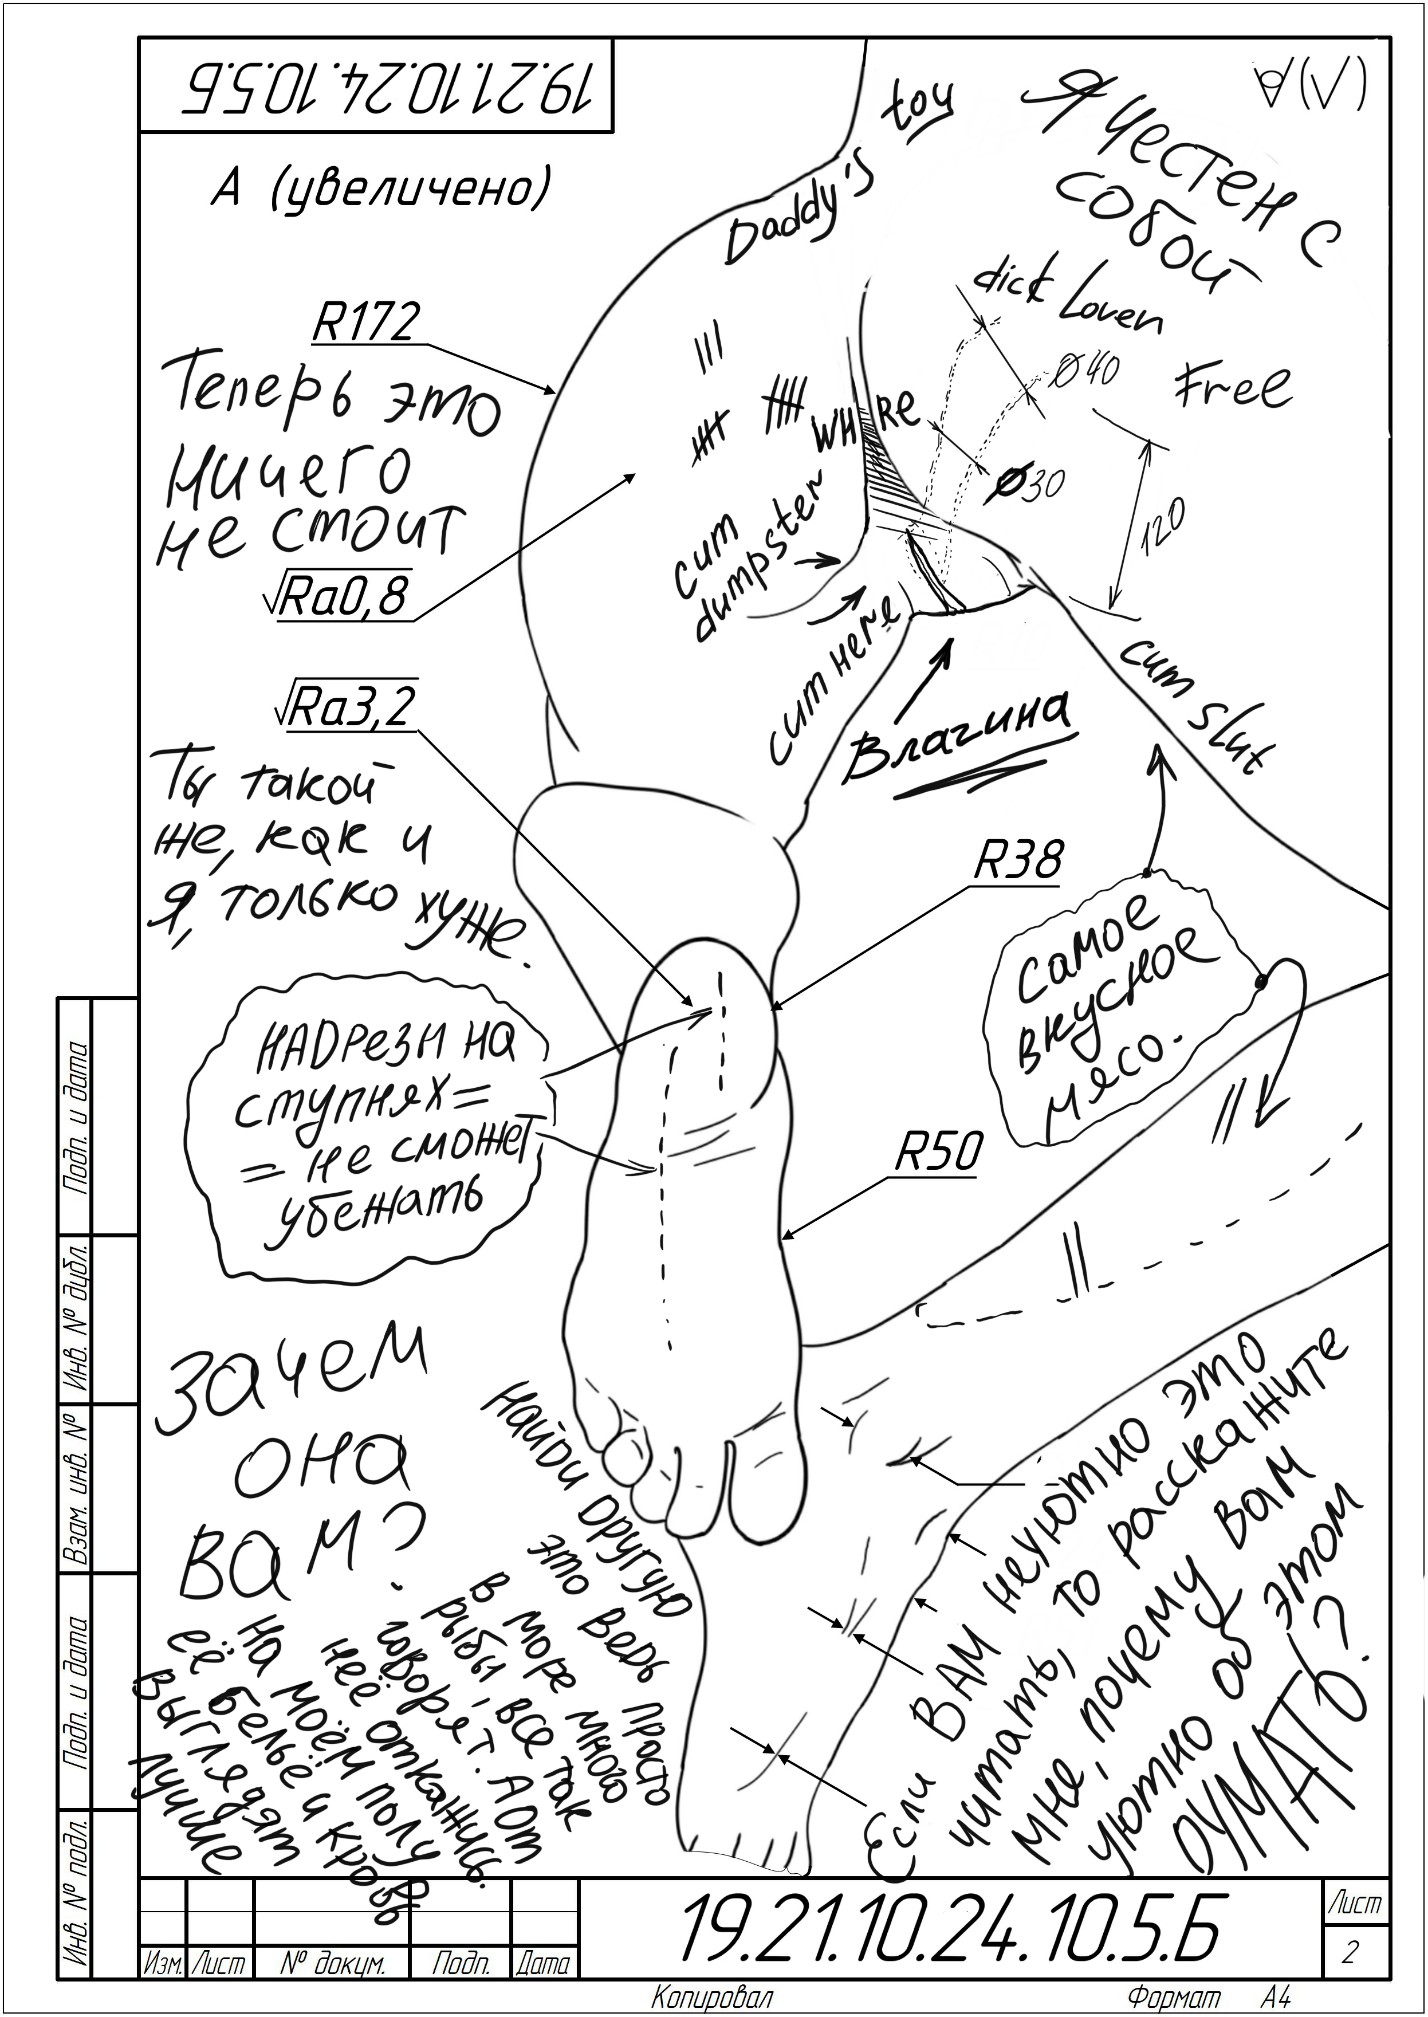 19.21.10.24.10.5.Б
А (увеличено)
√(√)
Я честен с
собой
Daddy's toy
dick Loven
Free
R172
Теперь это
ничего
не стоит
WHORe
Ø40
Ø30
120
cum
dumpster
cum here
cum slut
Ra0,8
Влагина
Ra3,2
Ты такой
же, как и
я, только хуже.
R38
Самое
вкусное
мясо.
НАДрезы на
ступнях=
= не сможет
убежать
R50
Зачем
она
вам?
Найди другую
это ведь просто
в море много
рыбы, все так
говорят. А от
неё откажись.
На моём полу
её бельё и кровь
выглядят
лучше
Если ВАМ неуютно это
читать, то расскажите
мне, почему вам
уютно об этом
ДУМАТЬ?
Подп. и дата
Инв. № дубл.
Взам. инв. №
Подп. и дата
Инв. № подл.
Изм. Лист № докум. Подп. Дата
19.21.10.24.10.5.Б
Лист
2
Копировал
Формат А4